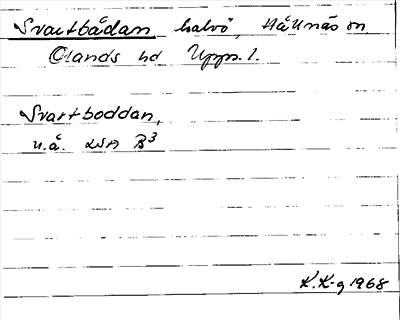 Svartbådan halvö, Hållnäs sn.
Olands hd Upps. l.
Svartboddan,
u.å. LSA B³
K.K-g 1968